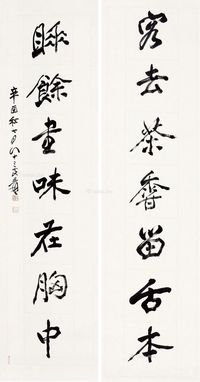 客去茶香留舌本
睡餘書味在胸中
辛酉秋七月八十三叟